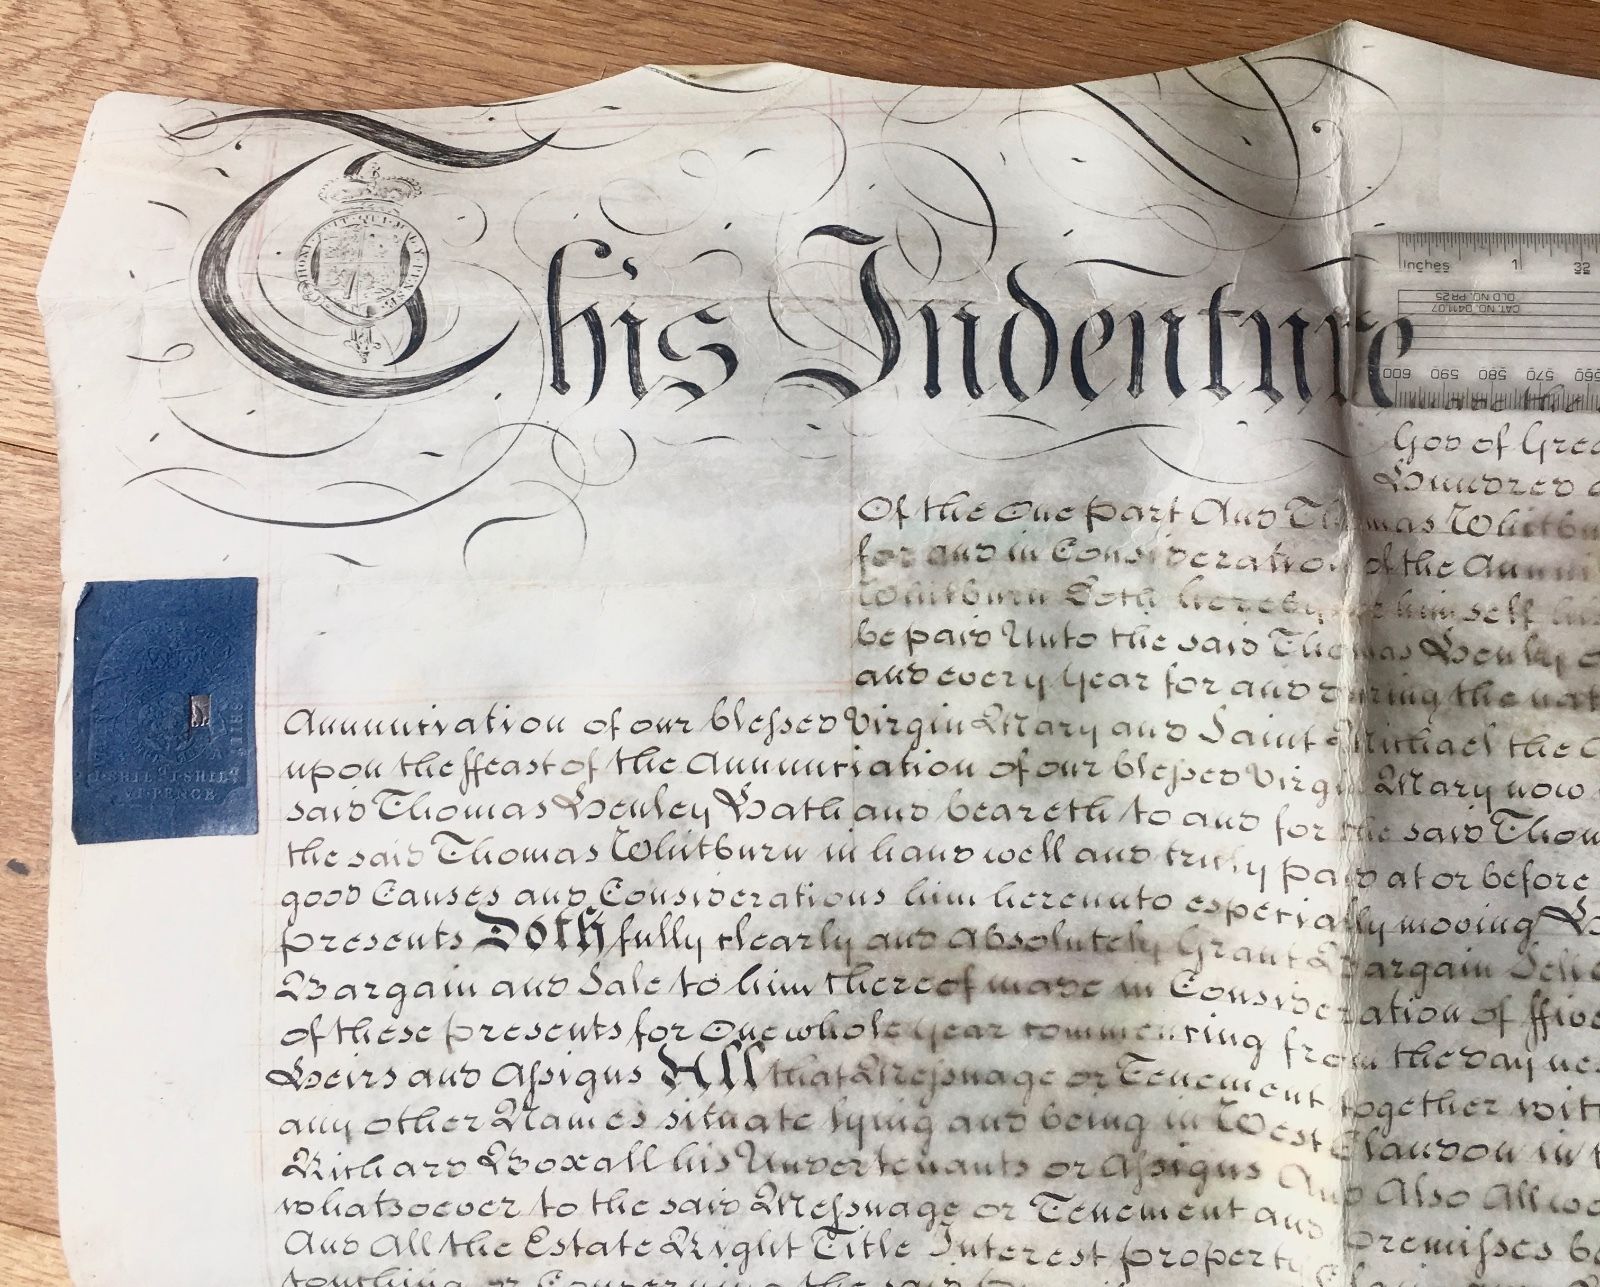 This Indenture
HONI SOIT QUI MAL Y PENSE
Inches 1 32
CAT. NO. D411.07
OLD NO. PR25
600 590 580 570 560
made the
God of Grea
Hundred a
Of the One part And Thomas Whitbu
for and in Consideration of the Annui
Whitburn Doth hereby for himself his
be paid Unto the said Thomas Henley
and every Year for and during the nat
Annunciation of our blessed Virgin Mary and Saint Michael the A
upon the ffeast of the Annunciation of our blessed Virgin Mary now
said Thomas Henley Hath and beareth to and for the said Thom
the said Thomas Whitburn in hand well and truly paid at or before
good Causes and Considerations him hereunto especially moving H
presents Doth fully clearly and Absolutely Grant Bargain Sell
Bargain and Sale to him thereof made in Consideration of ffive
of these presents for One whole Year commencing from the day ne
Heirs and Assigns All that Messuage or Tenement together wit
any other Names situate lying and being in West Clandon in t
Richard Boxall his Undertenants or Assigns And Also All wa
whatsoever to the said Messuage or Tenement and Premisses be
And All the Estate Right Title Interest property
touching or Concerning the said
II·SHILL II·SHILL
VI·PENCE